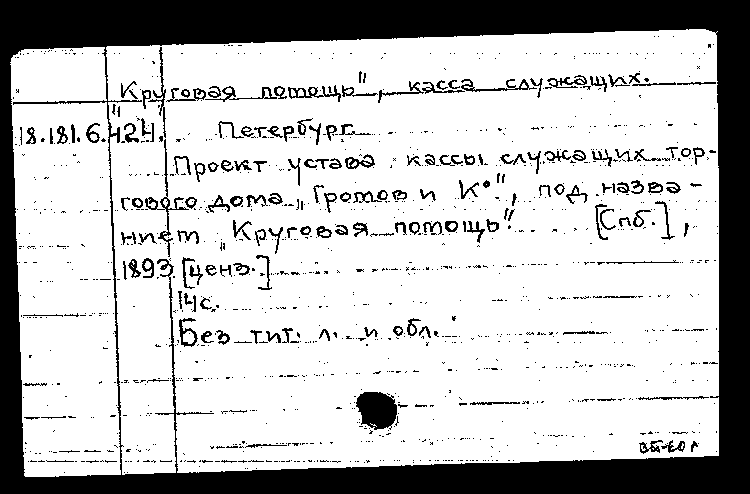 "Круговая помощь", касса служащих.
18.181.6.424. Петербург.
Проект устава кассы служащих тор-
гового дома „Громов и К°", под назва-
нием „Круговая помощь". [Спб.],
1893 [ценз.]
14с.
Без тит. л. и обл.